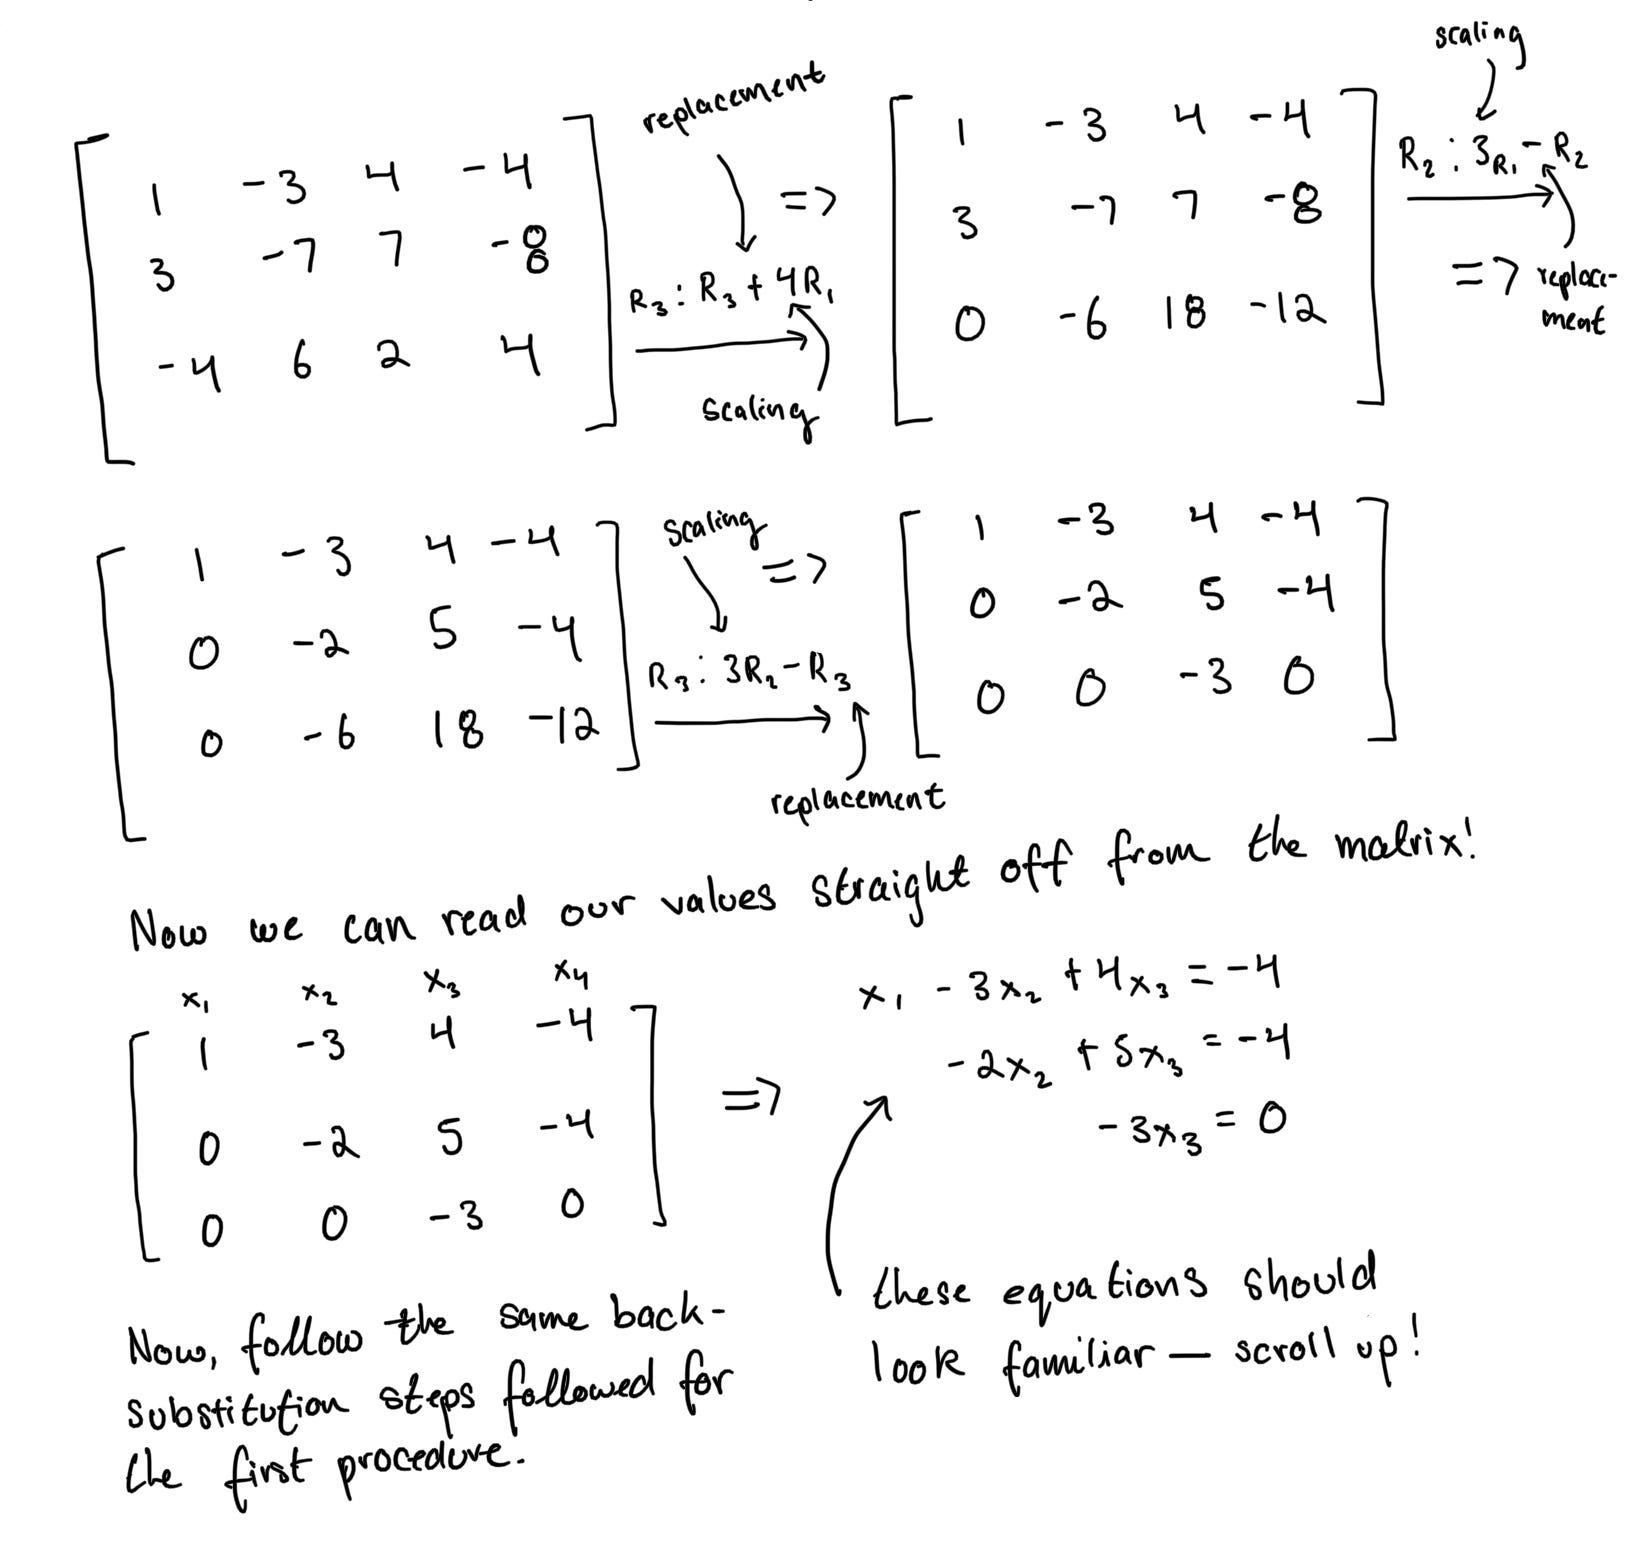 replacement
scaling
[ 1 -3 4 -4
3 -7 7 -8
-4 6 2 4 ]
R₃ : R₃ + 4R₁
=>
scaling
[ 1 -3 4 -4
3 -7 7 -8
0 -6 18 -12 ]
R₂ : 3R₁ - R₂
=> replace-
ment
[ 1 -3 4 -4
0 -2 5 -4
0 -6 18 -12 ]
scaling
=>
R₃ : 3R₂ - R₃
replacement
[ 1 -3 4 -4
0 -2 5 -4
0 0 -3 0 ]
Now we can read our values straight off from the matrix!
x₁ x₂ x₃ x₄
[ 1 -3 4 -4
0 -2 5 -4
0 0 -3 0 ]
=>
x₁ - 3x₂ + 4x₃ = -4
-2x₂ + 5x₃ = -4
-3x₃ = 0
these equations should
look familiar — scroll up!
Now, follow the same back-
substitution steps followed for
the first procedure.